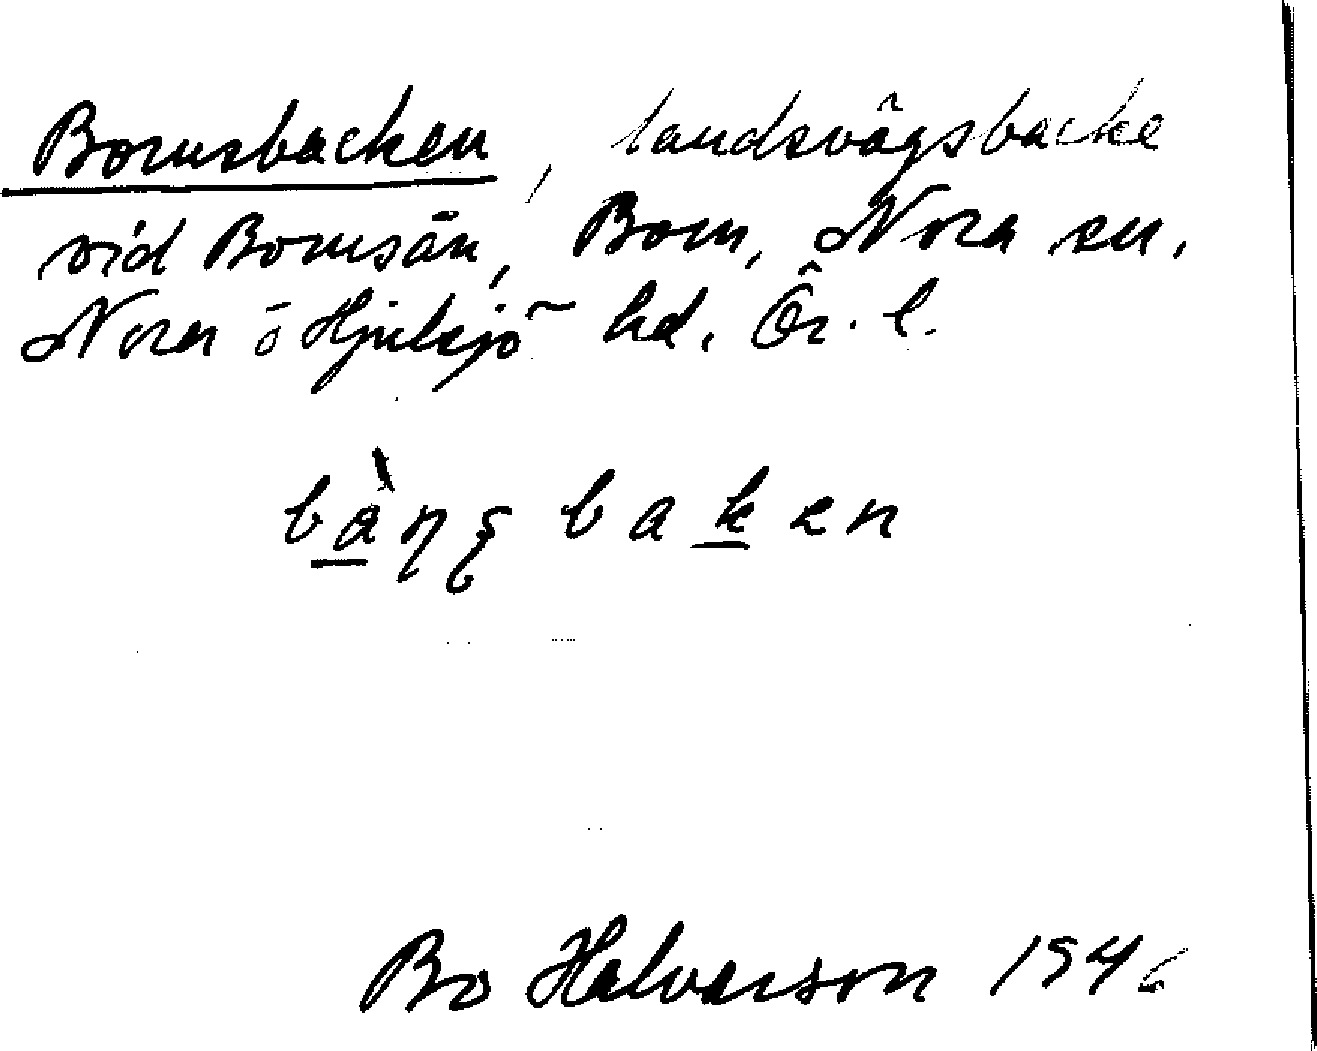 Bornsbacken, landsvägsbacke
vid Bornsån, Born, Nora sn,
Nora o Hjulsjö hd. Ör. l.
bànʂbaken
Bo Halvarson 1946